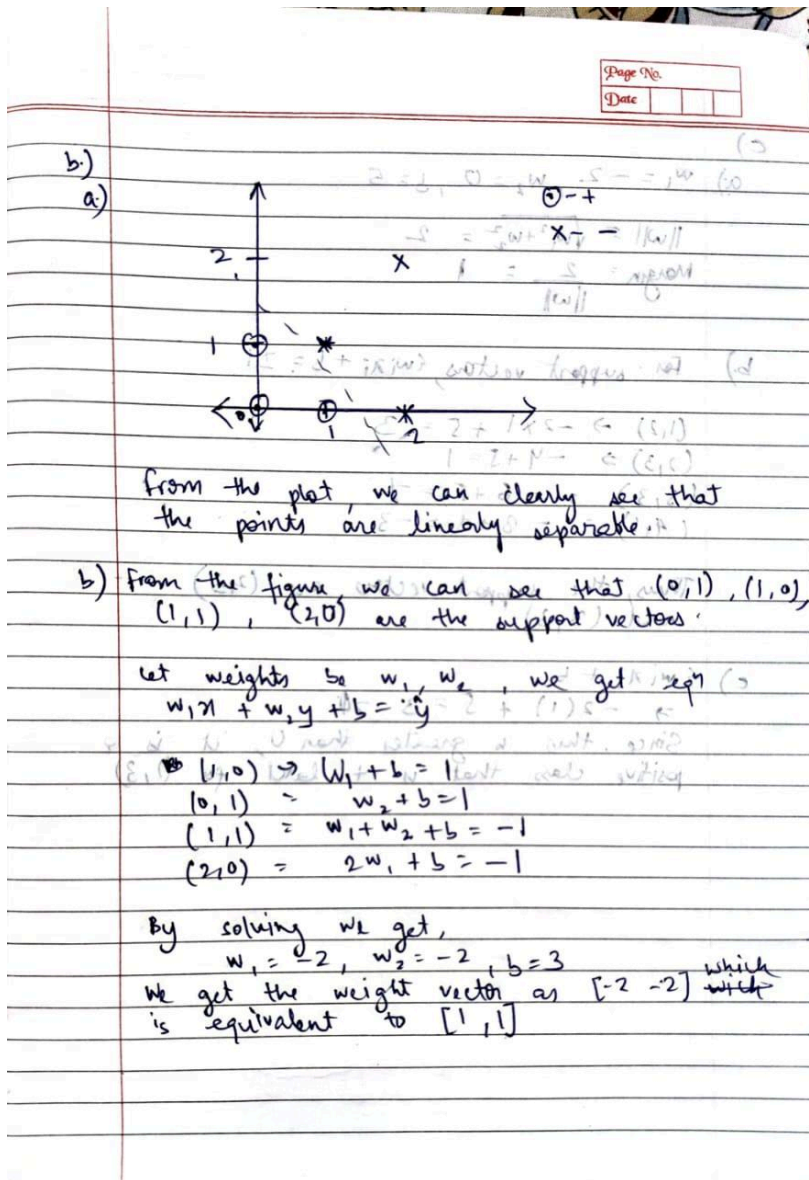 Page No.
Date
b.)
a.)
⊙ - +
x - -
2
1
0
1
2
from the plot, we can clearly see that
the points are linearly separable.
b) From the figure, we can see that (0,1), (1,0),
(1,1), (2,0) are the support vectors.
let weights be w₁, w₂, we get eqn
w₁x + w₂y + b = ŷ
(1,0) → w₁ + b = 1
(0,1) = w₂ + b = 1
(1,1) = w₁ + w₂ + b = -1
(2,0) = 2w₁ + b = -1
By solving we get,
w₁ = -2, w₂ = -2, b = 3
We get the weight vector as [-2 -2] which
is equivalent to [1, 1]